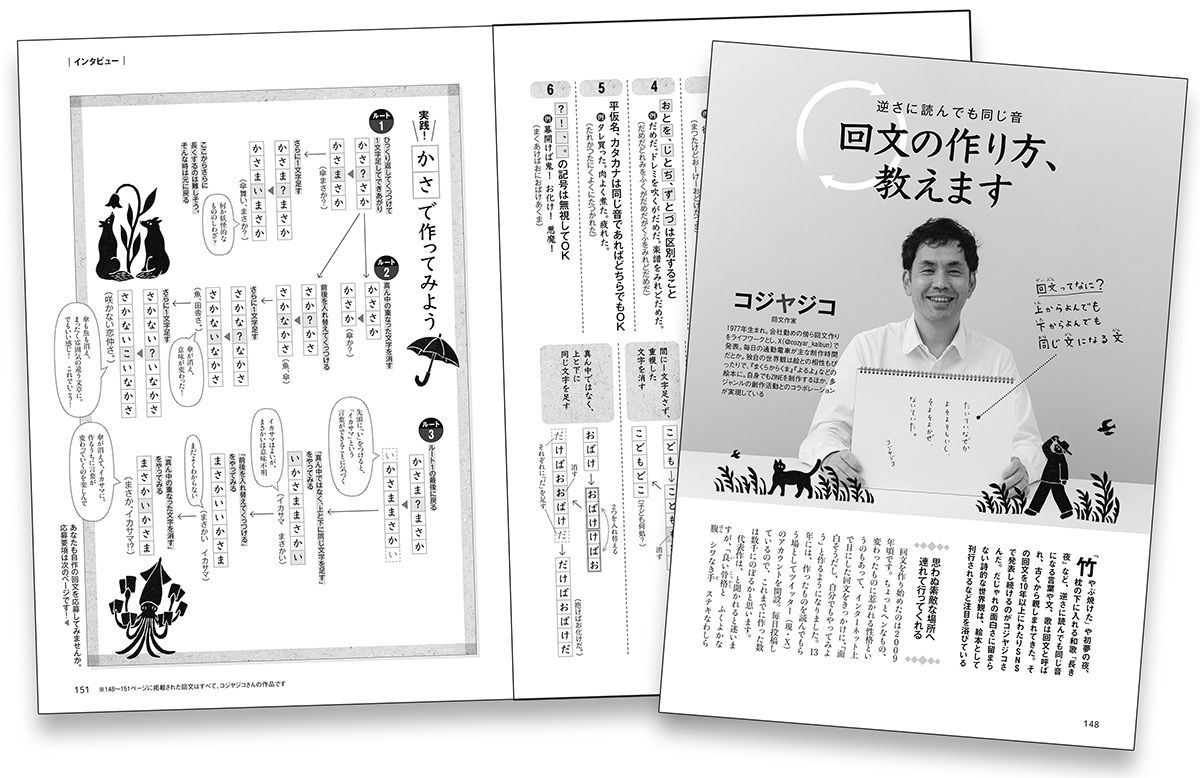 逆さに読んでも同じ音
回文の作り方、
教えます
コジヤジコ
回文作家
1977年生まれ。会社勤めの傍ら回文作り
をライフワークとし、X(@cozyar_kaibun)で
発表。毎日の通勤電車が主な制作時間
だとか。独自の世界観は絵との相性もぴ
ったりで、『まくらからくま』『よるよ』などの
絵本に。自身でもZINEを制作するほか、多
ジャンルの創作活動とのコラボレーション
が実現している
回文ってなに?
上からよんでも
下からよんでも
同じ文になる文
コジヤジコ
「竹やぶ焼けた」や初夢の夜、
枕の下に入れる和歌「長き
夜」など、逆さに読んでも同じ音
になる言葉や文、歌は回文と呼ば
れ、古くから親しまれてきた。そ
の回文を10年以上にわたりSNS
で発表し続けるのがコジヤジコさ
ん。だじゃれの面白さに留まら
ない詩的な世界観は、絵本として
刊行されるなど注目を浴びている
思わぬ素敵な場所へ
連れて行ってくれる
回文を作り始めたのは2009
年頃です。ちょっとヘンなもの、
変わったものに惹かれる性格とい
うのもあって、インターネット上
で目にした回文をきっかけに、「面
白そうだし、自分でもやってみよ
う」と作るようになりました。13
年には、作ったものを読んでもら
う場としてツイッター(現・X)
のアカウントを開設。毎日投稿し
ているので、これまでに作った数
は数千にのぼるかと思います。
代表作は、と聞かれると迷いま
すが、「良い骨格と ふくよかな
腹 シワなき手 ステキなわしら
148
4
おとを、じとぢ ずとづ は区別すること
例 だめだ。ドレミを吹くがだめだ。楽譜をみれどだめだ。
5
平仮名、カタカナは同じ音であればどちらでもOK
例 タレ買った。肉よく煮た。疲れた。
(たれかつたにくよくにたつかれた)
6
?!、。の記号は無視してOK
例 幕開けば鬼! お化け! 悪魔!
(まくあけばおにおばけあくま)
間に1文字足さず、
重複した
文字を消す
こどもどこ
(子ども何処)
消す
真ん中ではなく、
上と下に
同じ文字を足す
おばけ
おばけけばお
2つを入れ替える
消す
だけばおおばけだ
だけばおばけだ
それぞれに「だ」を足す
(抱けばお化けだ)
インタビュー
実践!
かさで作ってみよう
ルート1
ひっくり返してくっつけて
1文字足してできあがり
かさ?さか
かさまさか
(傘まさか?)
さらに1文字足す
かさま?まさか
かさまいまさか
(傘舞い、まさか?)
ここからさらに
長くするのは難しそう。
そんな時は元に戻る
何が怪談的な
ルート2
真ん中の重なった文字を消す
かささか
かさか
(傘か?)
前後を入れ替えてくっつける
さかかさ
さかなかさ
(魚、傘)
さらに1文字足す
さかな?なかさ
さかないなかさ
(魚、田舎さ。)
傘が消え、
意味が変わった!
さらに1文字足す
さかない?いなかさ
さかないこいなかさ
(咲かない恋仲さ。)
傘も魚も消え、
まったく雰囲気の違う文章に。
でもいい感じ!
これでいこう!
ルート3
ルート1の最後に戻る
かさま?まさか
いかさままさかい
先頭に「い」をつけると、
「イカサマ」という
言葉ができることに気づく
「真ん中ではなく、上と下に同じ文字を足す」
をやってみる
いかさままさかい
(イカサマ まさかい)
イカサマはよいが、
まさかいは意味不明
「前後を入れ替えてくっつける」
をやってみる
まさかいいかさま
(まさかい イカサマ)
まだよくわからない
「真ん中の重なった文字を消す」
をやってみる
まさかいかさま
(まさか、イカサマ!?)
傘が消えて、イカサマに。
作るうちに言葉が
変わっていくのを楽しんで
あなたも自作の回文を応募してみませんか。
応募要項は次のページです→
151
※148〜151ページに掲載された回文はすべて、コジヤジコさんの作品です